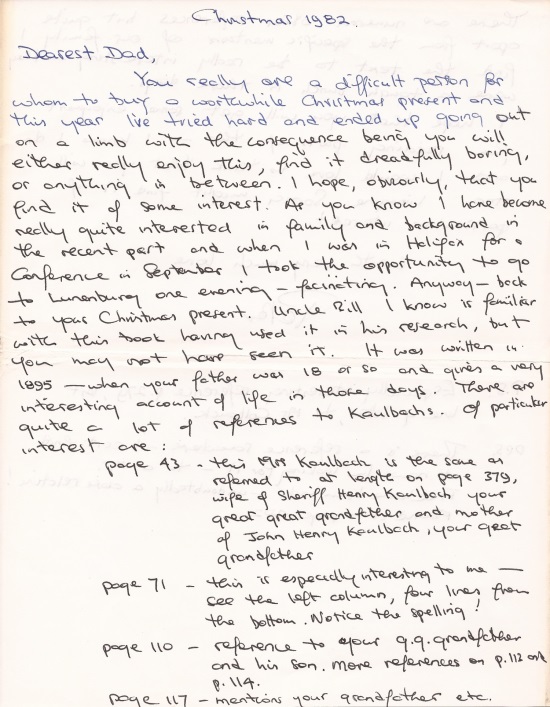 Christmas 1982.
Dearest Dad,
You really are a difficult person for
whom to buy a worthwhile Christmas present and
this year I've tried hard and ended up going out
on a limb with the consequence being you will
either really enjoy this, find it dreadfully boring,
or anything in between. I hope, obviously, that you
find it of some interest. As you know I have become
really quite interested in family and background in
the recent past and when I was in Halifax for a
Conference in September I took the opportunity to go
to Lunenburg one evening - facinating. Anyway - back
to your Christmas present. Uncle Bill I know is familiar
with this book having used it in his research, but
you may not have seen it. It was written in
1895 - when your father was 18 or so and gives a very
interesting account of life in those days. There are
quite a lot of references to Kaulbachs. Of particular
interest are:
page 43 - this Mrs Kaulbach is the same as
referred to at length on page 379,
wife of Sheriff Henry Kaulbach your
great great grandfather and mother
of John Henry Kaulbach, your great
grandfather
page 71 - this is especially interesting to me -
see the left column, four lines from
the bottom. Notice the spelling!
page 110 - reference to your g.g. grandfather
and his son. More references on p.112 and
p.114.
page 117 - mentions your grandfather etc.